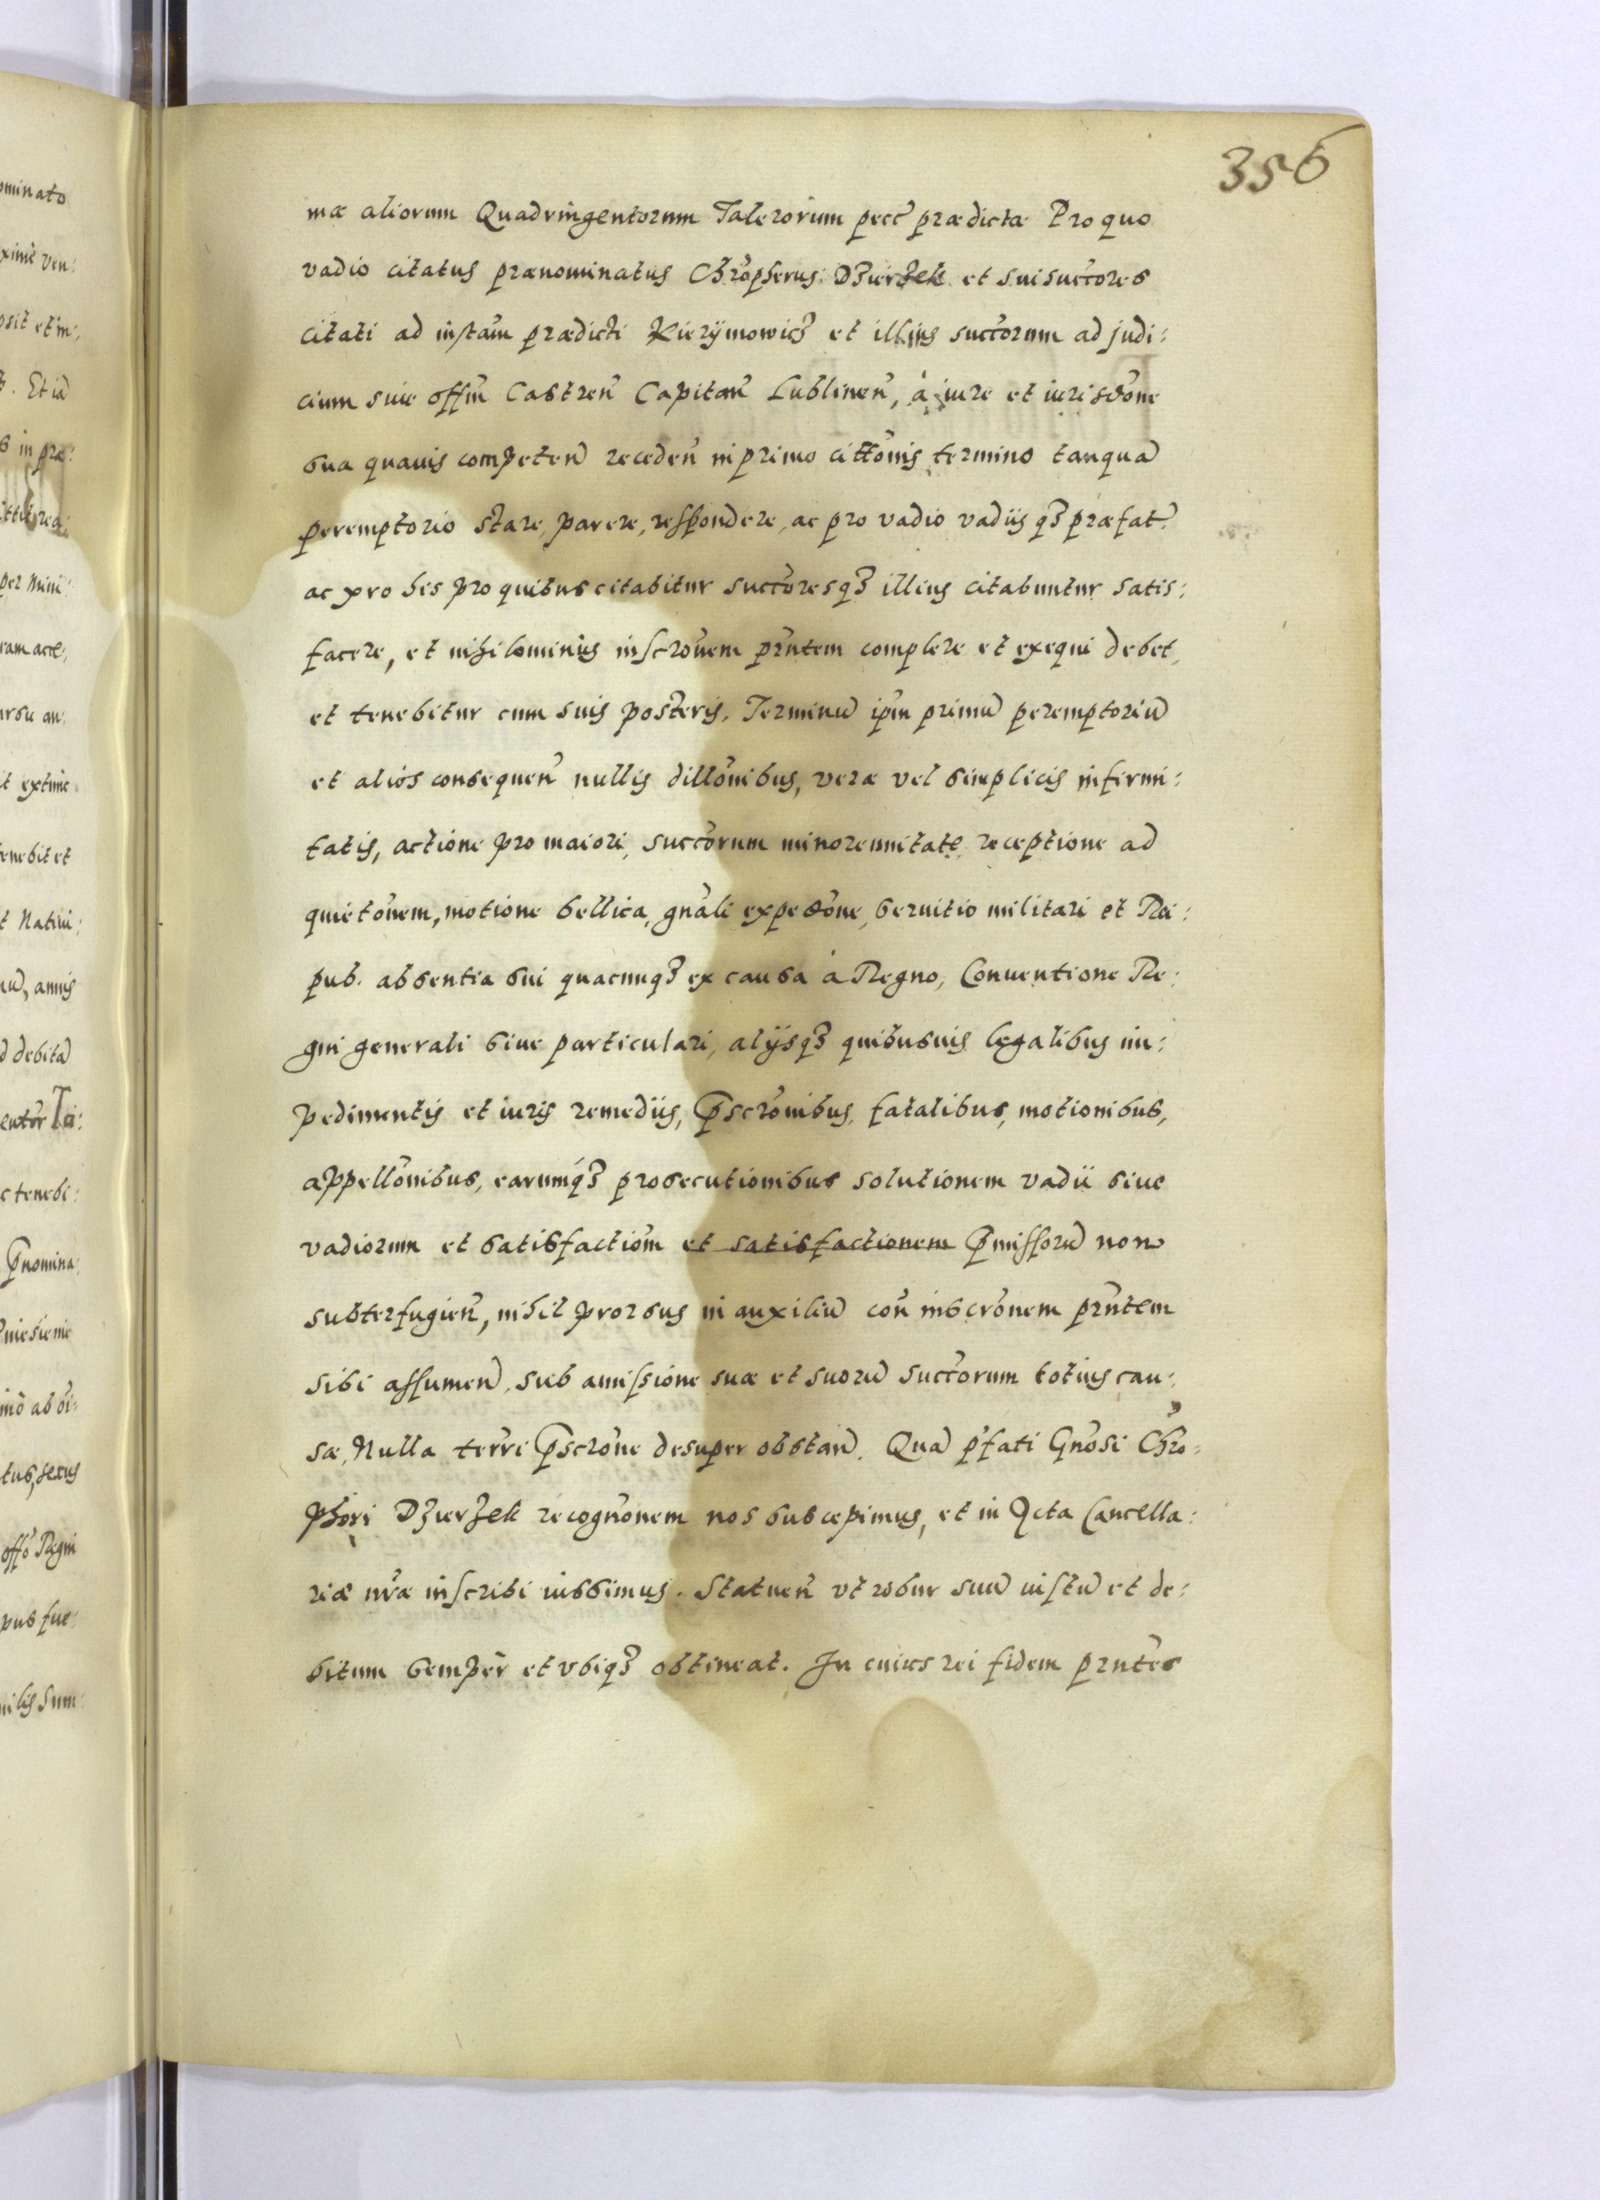 356
mæ aliorum Quadringentorum Talerorum pecc̃ prædictæ Pro quo
vadio citatus prænominatus Chrõpherus Dzierżek et sui succõres
citati ad instam̃ prædicti Kierijmowicz et illius succõrum ad judi:
cium sive offm̃ Castren̄ Capitan̄ Lublinen̄, à iure et iurisdõne
sua quavis competen̄ receden̄ in primo cittõnis termino tanquā
peremptorio stare, parere, respondere, ac pro vadio vadiis q₃ præfat̃
ac pro his pro quibus citabitur succõres q₃ illius citabuntur satis:
facere, et nihilominùs inscrõnem prn̄tem complere et exequi debet,
et tenebitur cum suis posteris. Terminū ipm̄ primū peremptoriū
et alios consequen̄ nullis dillõnibus, veræ vel simplicis infirmi:
tatis, actione pro maiori, succõrum minorennitate, receptione ad
quietõnem, motione bellica, gnãli expedõne, servitio militari et Rei:
pub. absentia sui quacunq₃ ex causa à Regno, Conventione Re:
gni generali sive particulari, alijsq₃ quibusvis legalibus im:
pedimentis et iuris remediis, p̃scrõnibus, fatalibus, motionibus,
appellõnibus, earumq́₃ prosecutionibus solutionem vadii sive
vadiorum et satisfactiom̃ et satisfactionem p̃missorū non
subterfugien̄, nihil prorsus in auxiliū con̄ inscrõnem prn̄tem
sibi assumen̄, sub amissione suæ et suorū succõrum totius cau:
sæ, Nulla terrĩ p̃scrõne desuper obstan̄. Quā p̃fati Gnõsi Chrõ:
phori Dzierżek recognõnem nos suscepimus, et in Acta Cancella:
riæ nr̃æ inscribi iussimus. Statuen̄ vt robur suū iustū et de:
bitum semper et vbiq₃ obtineat. In cuius rei fidem prn̄tes